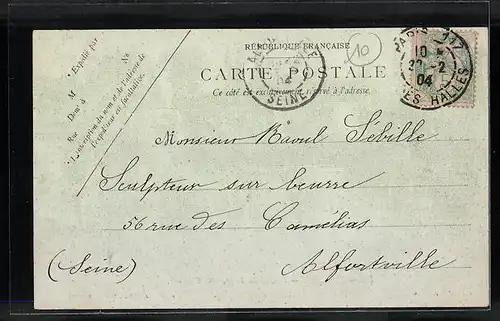 RÉPUBLIQUE FRANÇAISE
10
CARTE POSTALE
Ce côté est exclusivement réservé à l'adresse.
Expédié par
M
Demt à
Rue No
L'inscription du nom et de l'adresse de
l'expéditeur est facultative.
ALFORTVILLE
04
SEINE
PARIS
10
2
04
LES HALLES
Monsieur Raoul Sébille
Sculpteur sur beurre
56 rue des Camélias
(Seine) Alfortville